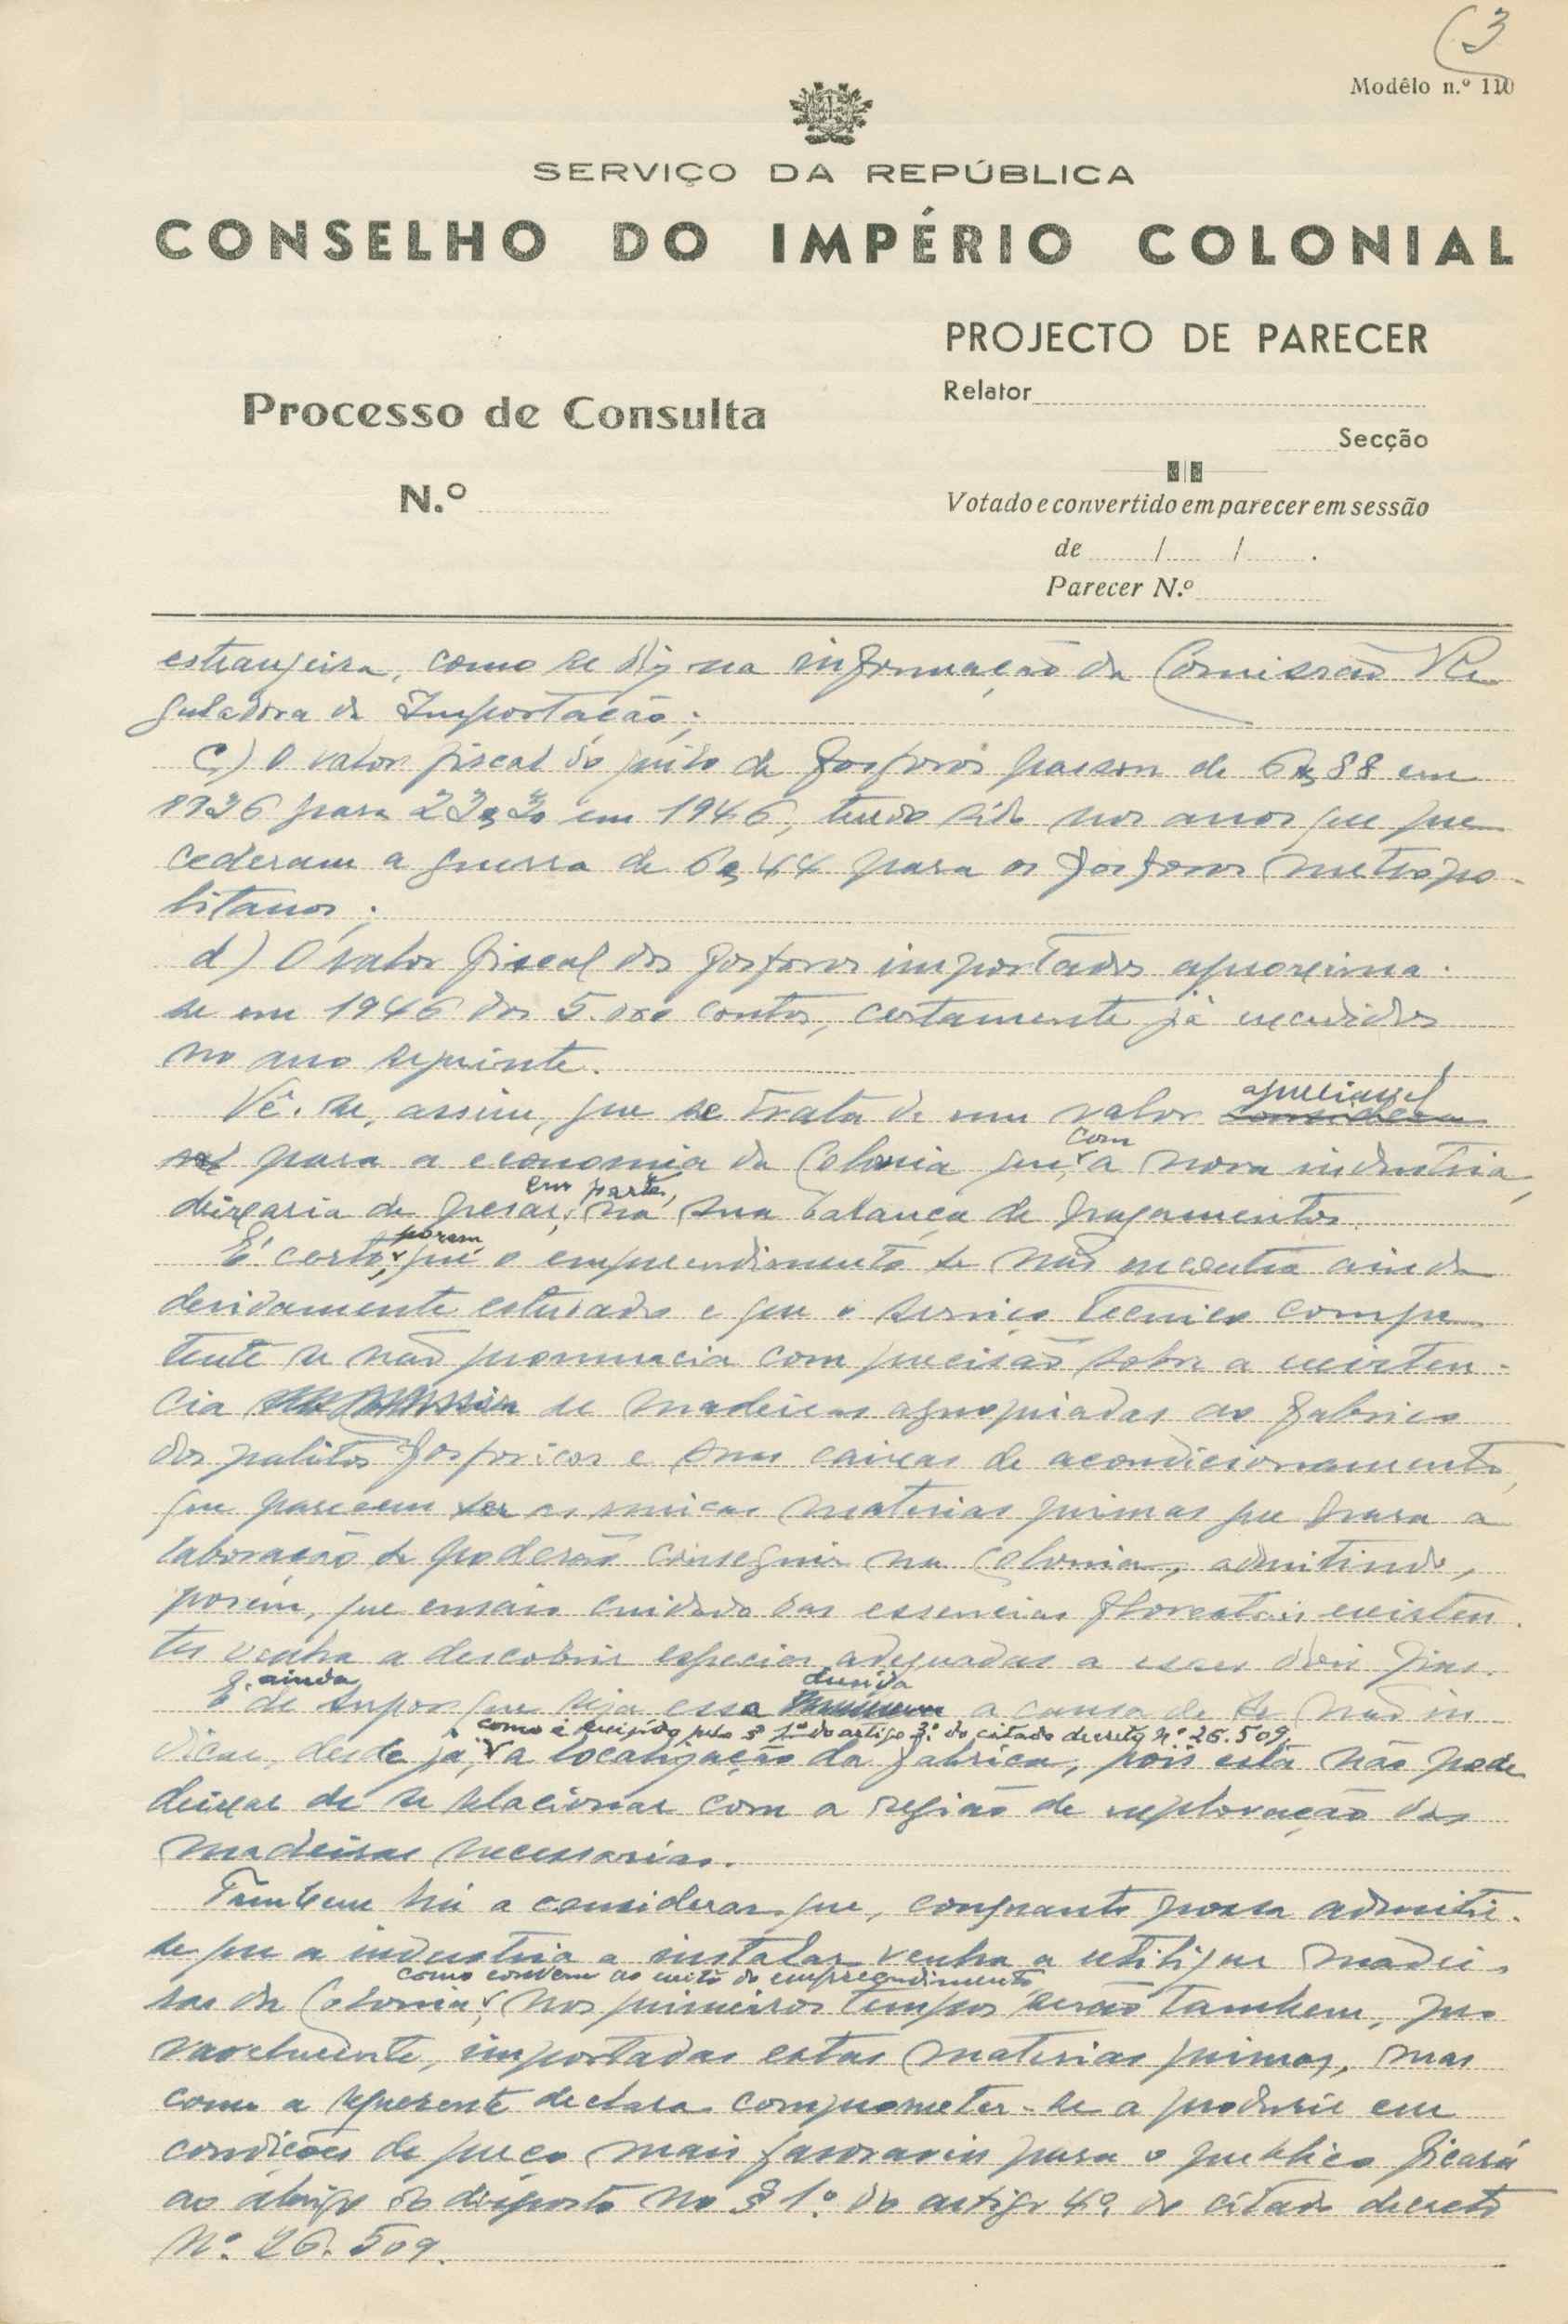 3
Modêlo n.º 110
SERVIÇO DA REPÚBLICA
CONSELHO DO IMPÉRIO COLONIAL
PROJECTO DE PARECER
Relator
Processo de Consulta
Secção
N.º
Votado e convertido em parecer em sessão
de / / .
Parecer N.º
estrangeira, como se diz na informação da Comissão Re
guladora da Importação;
c) O valor fiscal do quilo de fosforos passou de 6$,88 em
1936 para 23$,30 em 1946, tendo sido nos anos que pre
cederam a guerra de 6$,44 para os fosforos metropo-
litanos;
d) O valor fiscal dos fosforos importados aproxima-
se em 1946 dos 5.000 contos, certamente já excedidos
no ano seguinte.
apreciavel
Vê-se, assim, que se trata de um valor considera
com
vel para a economia da Colonia que, a nova industria,
em parte,
deixaria de pesar, na sua balança de pagamentos.
porem
É certo, que o empreendimento se não encontra ainda
devidamente estudado e que o serviço tecnico compe
tente se não pronuncia com precisão sobre a existen-
cia de madeiras apropriadas ao fabrico
dos palitos fosforicos e suas caixas de acondicionamento,
que parecem ser as unicas materias primas que para a
laboração se poderão conseguir na Colonia, admitindo,
porém, que ensaio cuidado das essencias florestais existen-
tes venha a descobrir especies adequadas a esses dois fins.
E, ainda, duvida
É de supor que seja essa a causa de se não in
como é exigido pelo § 1º do artigo 3º do citado decreto nº 26.509,
dicar, desde já, a localização da fabrica, pois esta não pode
deixar de se relacionar com a região de exploração das
madeiras necessarias.
Tambem há a considerar que, conquanto possa admitir-
se que a industria a instalar venha a utilizar madei-
como convem ao exito do empreendimento,
ras da Colonia, nos primeiros tempos serão tambem, pro
vavelmente, importadas estas materias primas, mas
como a requerente declara comprometer-se a produzir em
condições de preço mais favoraveis para o publico ficará
ao abrigo do disposto no § 1.º do artigo 4º do citado decreto
Nº. 26.509.